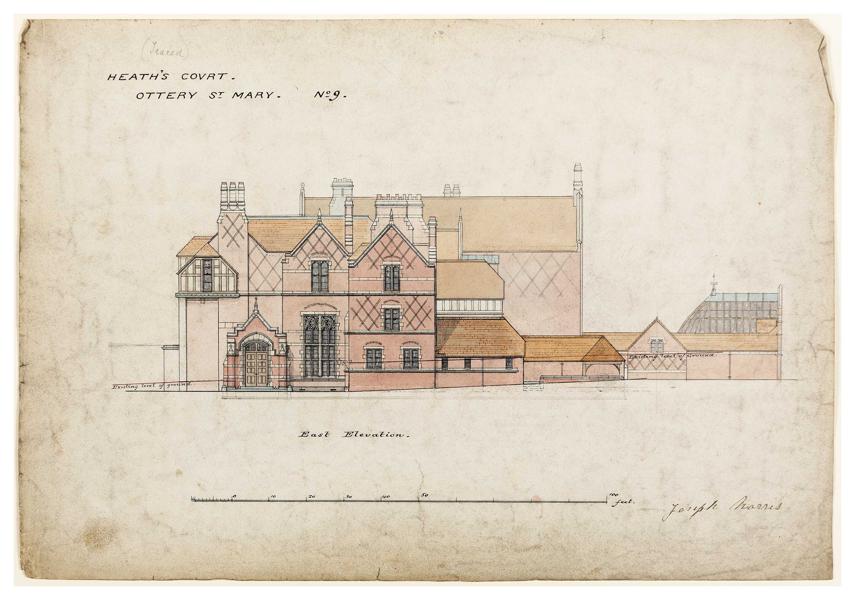 (Traced)
HEATH'S COVRT.
OTTERY ST MARY. No 9.
Existing level of ground
Existing level of ground
East Elevation.
0 10 20 30 40 50 100 feet.
Joseph Norris